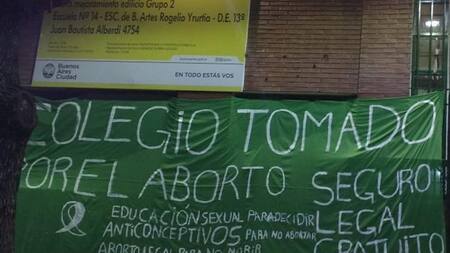 mejoramiento edificio Grupo 2
Escuela N° 14 - ESC. de B. Artes Rogelio Yrurtia - D.E. 13°
Juan Bautista Alberdi 4754
Buenos Aires Ciudad
EN TODO ESTÁS VOS
COLEGIO TOMADO
POR EL ABORTO SEGURO
LEGAL
GRATUITO
EDUCACIÓN SEXUAL PARA DECIDIR
ANTICONCEPTIVOS PARA NO ABORTAR
ABORTO LEGAL PARA NO MORIR